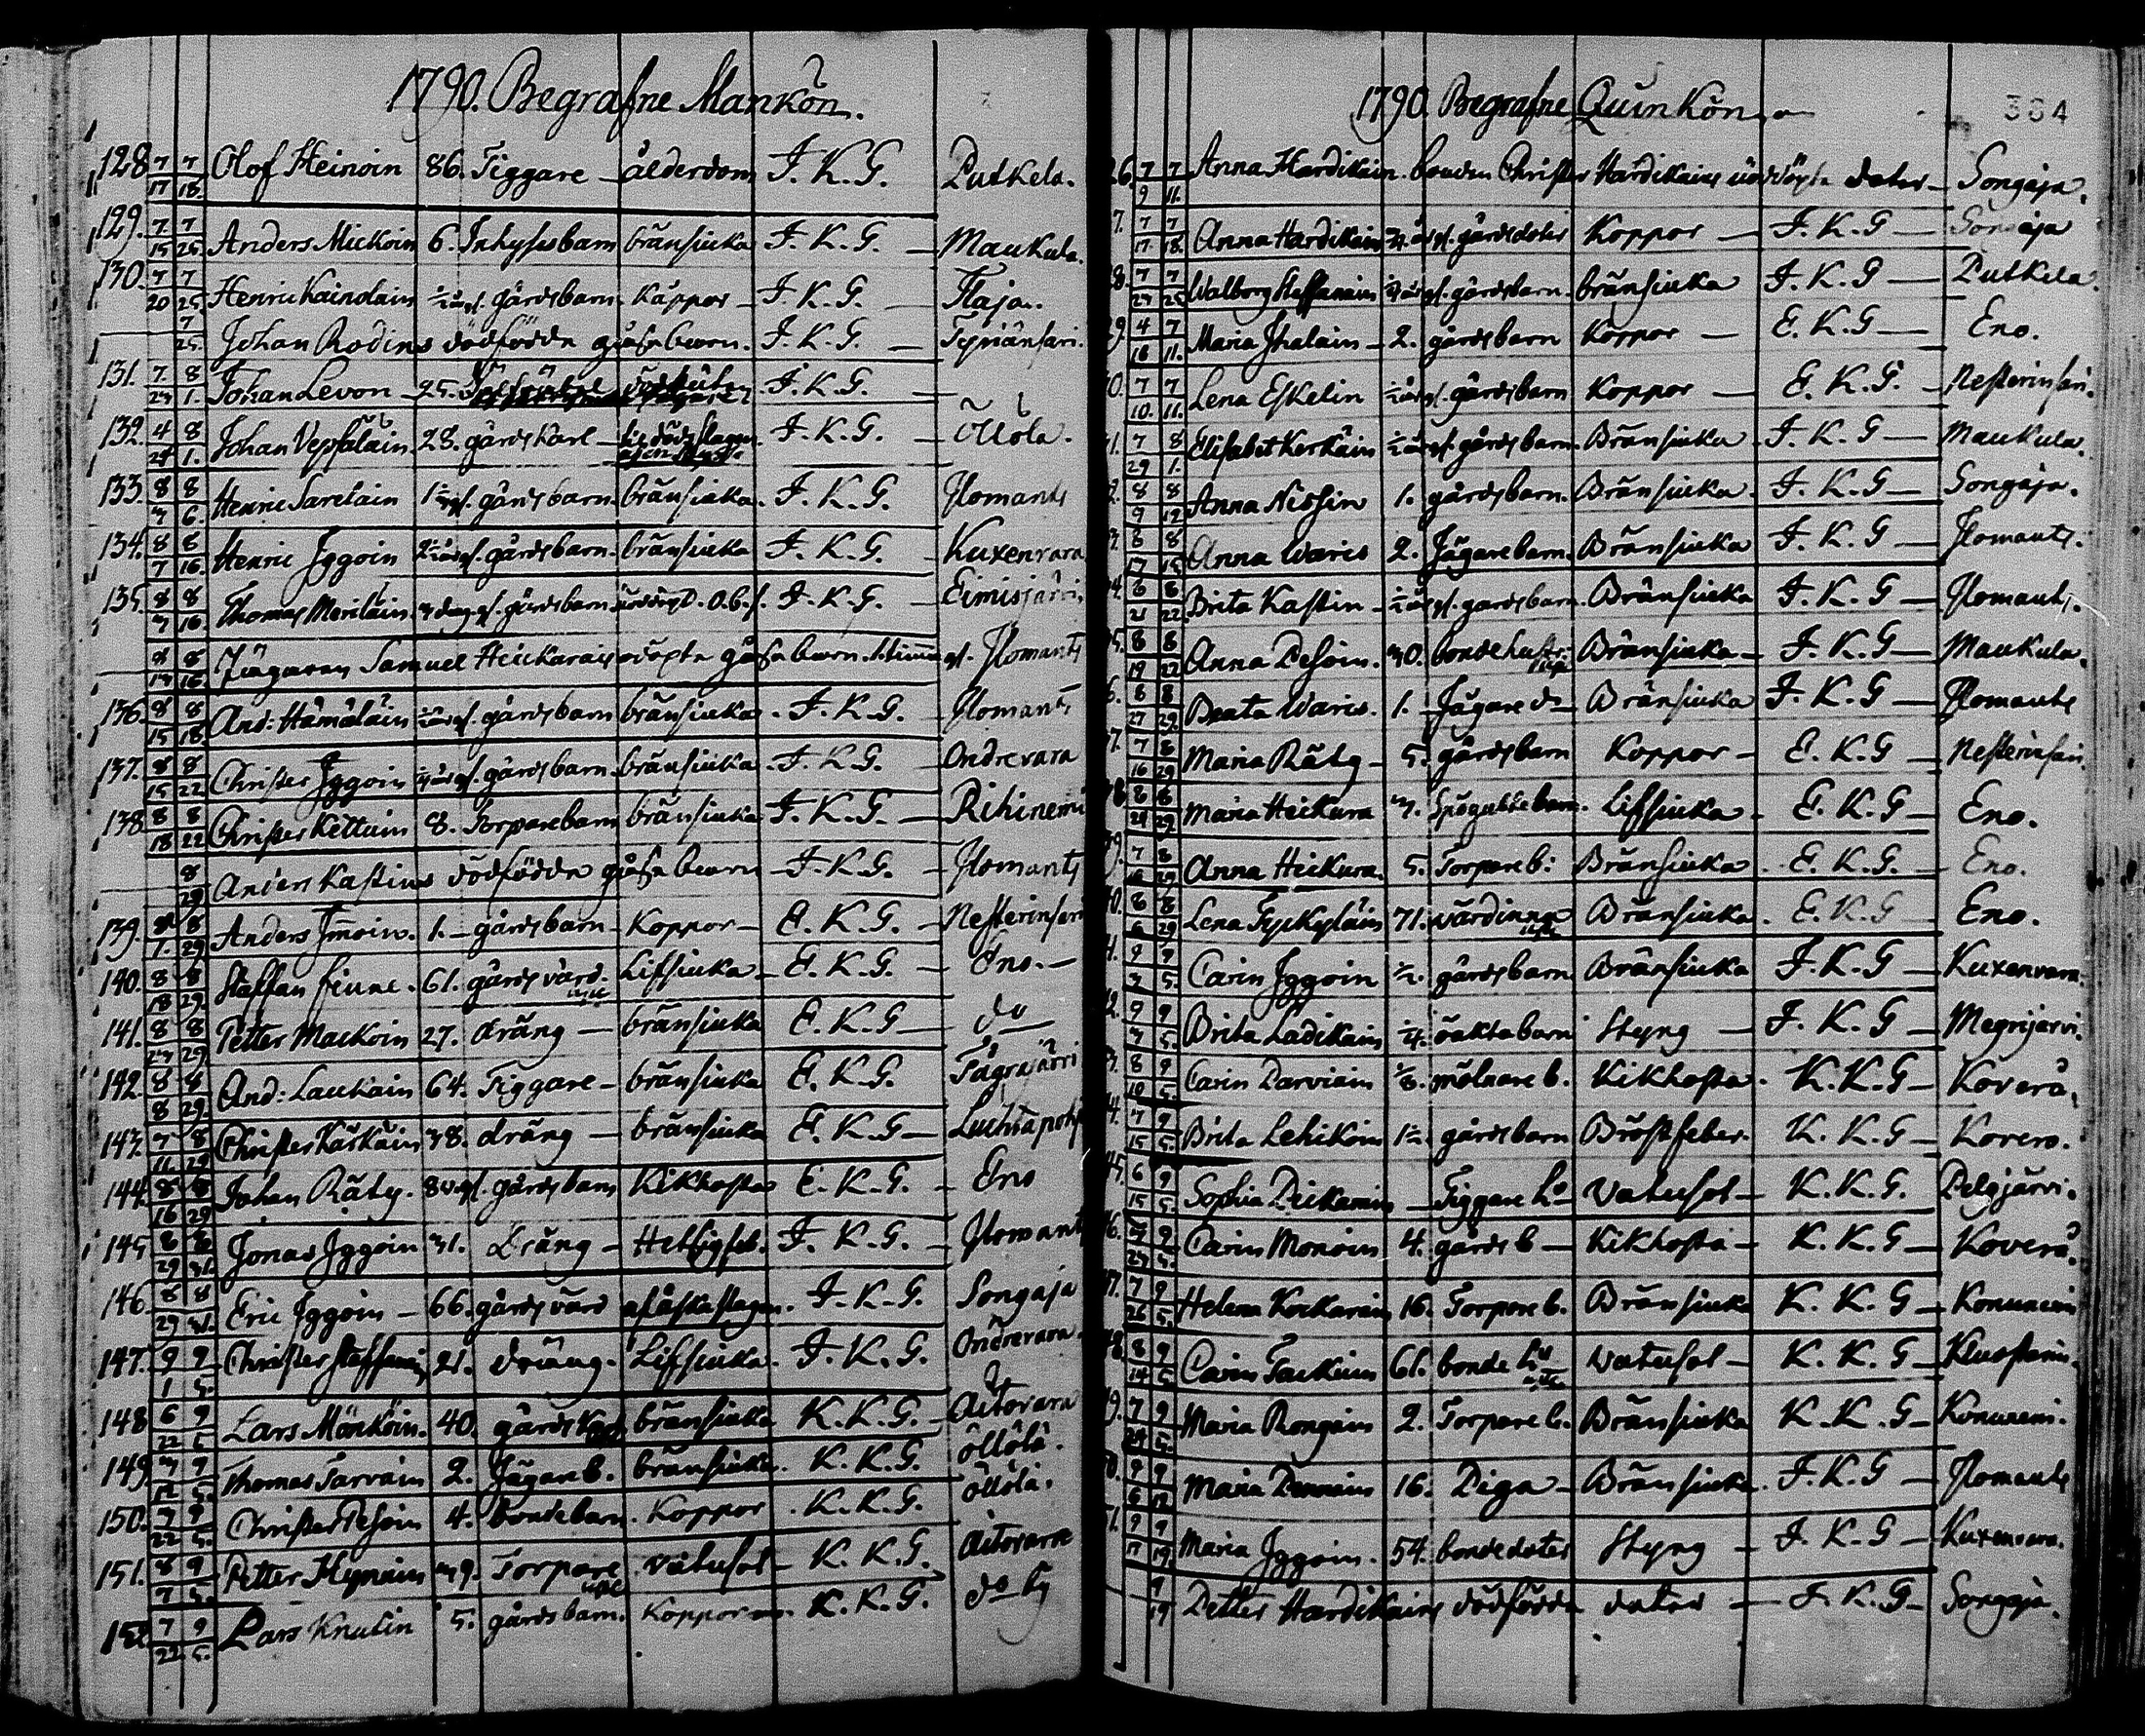 1790. Begrafne Mankön.
128. 7/17 7/18. Olof Heinoin 86. Tiggare - ålderdom I. K. G. Putkela.
129. 7/15 7/25. Anders Mickoin 6. Inhyses barn bränsiuka I. K. G. - Maukula.
130. 7/20 7/25. Henric Kainolain gårdsbarn Koppor - I. K. G. - Ilaja.
7/25. Johan Rodins dödfödda barn. I. K. G. -
131. 7/23 8/1. Johan Levon - 25. I. K. G. -
132. 4/24 8/1. Johan Vepsäläin 28. gårds Karl - I. K. G. - Ollola.
133. 8/3 8/6. Henric Saretain gl. gårdsbarn bränsiuka. I. K. G. Ilomants
134. 8/7 8/16. Henric Iggoin gårdsbarn. bränsiuka I. K. G. - Kuxenvara
135. 8/7 8/16. Thomas Meriläin 3 dag. gl. gårdsbarn I. K. G. - Eimisjärvi
8/13 8/16. Jägaren Samuel Heickarais odöpta barn gl. Ilomants
136. 8/15 8/18. And: Hämäläin gårdsbarn bränsiuka. I. K. G. - Ilomants
137. 8/15 8/22. Christer Iggoin gårdsbarn. bränsiuka. I. K. G. - Ondrevara
138. 8/18 8/22. Christer Kettuin 8. Torpare barn bränsiuka I. K. G. - Rihinemi
8/29 Anders Kastins dödfödda barn - I. K. G. - Ilomants
139. 8/1. 8/29 Anders Immoin. 1. - gårdsbarn - Koppor - E. K. G. - Nesterinsari
140. 8/18 8/29. Staffan Finne. 61. gårdsvärd. Lifsiuka - E. K. G. - Eno. -
141. 8/23 8/29 Petter Mackoin 27. dräng - bränsiuka E. K. G - do
142. 8/8 8/29. And: Laukain 64. Tiggare - bränsiuka E. K. G.
143. 7/11 8/29 Christer Kärkäin 38. dräng - bränsiuka E. K. G - Luchtapohj
144. 8/16 8/29 Johan Räty. gårdsbarn Kikhosta E. K. G. - Eno
145 8/29 8/31. Jonas Iggoin 31. Dräng - I. K. G. - Ilomants
146. 8/29 8/31. Eric Iggoin - 66. gårdsvärd af åska slagen. I. K. G. Songaja
147. 9/1 9/5. Christer Steffanin 21. dräng. Lifsiuka. I. K. G. Ondrevara.
148 6/22 9/5 Lars Mönköin. 40. gårds Karl bränsiuka K. K. G. - Aitovara
149. 7/12 9/5. Thomas Tarvain 2. Jägare b. bränsiuka. K. K. G. öllölä.
150. 7/22 9/5. Christer Pesoin 4. bondebarn. Koppor. K. K. G. öllölä.
151. 8/7 9/5. Petter Hynnin 39. Torpare vatusot - K. K. G. Aitovara
152 7/22 9/5. Lars Knutin 5. gårdsbarn. Koppor K. K. G. do by
1790. Begrafne Quinkön
334
26. 7/9 7/11. Anna Hardikain. bonden Christer Hardikains dotter - Songaja.
7. 7/17 7/18. Anna Hardikain gl. gårds doter Koppor - I. K. G - Songaja
8. 7/23 7/25 Walborg Steffanain gårdsbarn. bränsiuka I. K. G - Putkela.
9. 4/16 7/11. Maria Ihalain - 2. gårdsbarn Koppor - E. K. G - Eno.
0. 7/10. 7/11. Lena Eskelin gårdsbarn Koppor - E. K. G. - Nesterinsari.
1. 7/29 8/1. Elisabet Kerkäin gårdsbarn. Bränsiuka. I. K. G - Maukula.
2. 8/9 8/12 Anna Nissin 1. gårdsbarn. Bränsiuka. I. K. G - Songaja.
3. 8/17 8/15 Anna Waris 2. Jägare barn. Bränsiuka I. K. G - Ilomants.
4. 8/21 8/22. Brita Kastin - gårdsbarn. Bränsiuka I. K. G - Ilomants.
5. 8/19 8/22 Anna Pesoin. 30. bondehustr: Bränsiuka - I. K. G - Maukula.
6. 8/27 8/29. Beata Waris. 1. Jägare Bränsiuka I. K. G - Ilomants
7. 7/16 8/29 Maria Räty - 5. gårdsbarn Koppor - E. K. G - Nesterinsari
8 8/24 8/29 Maria Heickura barn. Lifsiuka. E. K. G - Eno.
9. 7/18 8/29 Anna Heickura. 5. Torpare b: Bränsiuka. E. K. G. - Eno.
0. 8/6 8/29 Lena Tyckyläin 71. värdinna Bränsiuka. E. K. G - Eno.
1. 9/3 9/5. Carin Iggoin 1/2. gårdsbarn Bränsiuka I. K. G - Kuxenvara.
2. 9/3 9/5. Brita Ladikain 1/4. barn Styng - I. K. G - Megrijarvi.
3. 8/10 9/5. Carin Parviain mölnare b. Kikhosta. K. K. G - Koverå.
4. 7/15 9/5. Brita Lehikoin gårdsbarn Bröstfeber. K. K. G - Kovero.
45. 6/15 9/5. Sophia Dickamin - Tiggare ho Vatusot - K. K. G. Pelgjärvi.
6. 7/23 9/5. Carin Monoin 4. gårds b - Kikhosta - K. K. G - Koverå.
47. 7/26 9/5. Helena Kockarain 16. Torpare b. Bränsiuka K. K. G - Konuneni
48. 8/14 9/5 Carin Tackuin 61. bonde ho Vatusot - K. K. G -
49. 7/24 9/5. Maria Rongain 2. Torpare b. Bränsiuka K. K. G - Konuneni.
0. 9/6 9/12 Maria 16. Piga - Bränsiuka. I. K. G - Ilomants
1. 9/17 9/19. Maria Iggoin. 54. bondedoter Styng - I. K. G - Kuxenvara.
9/19 Petter Hardikains dödfödda dotter - I. K. G - Songaja.